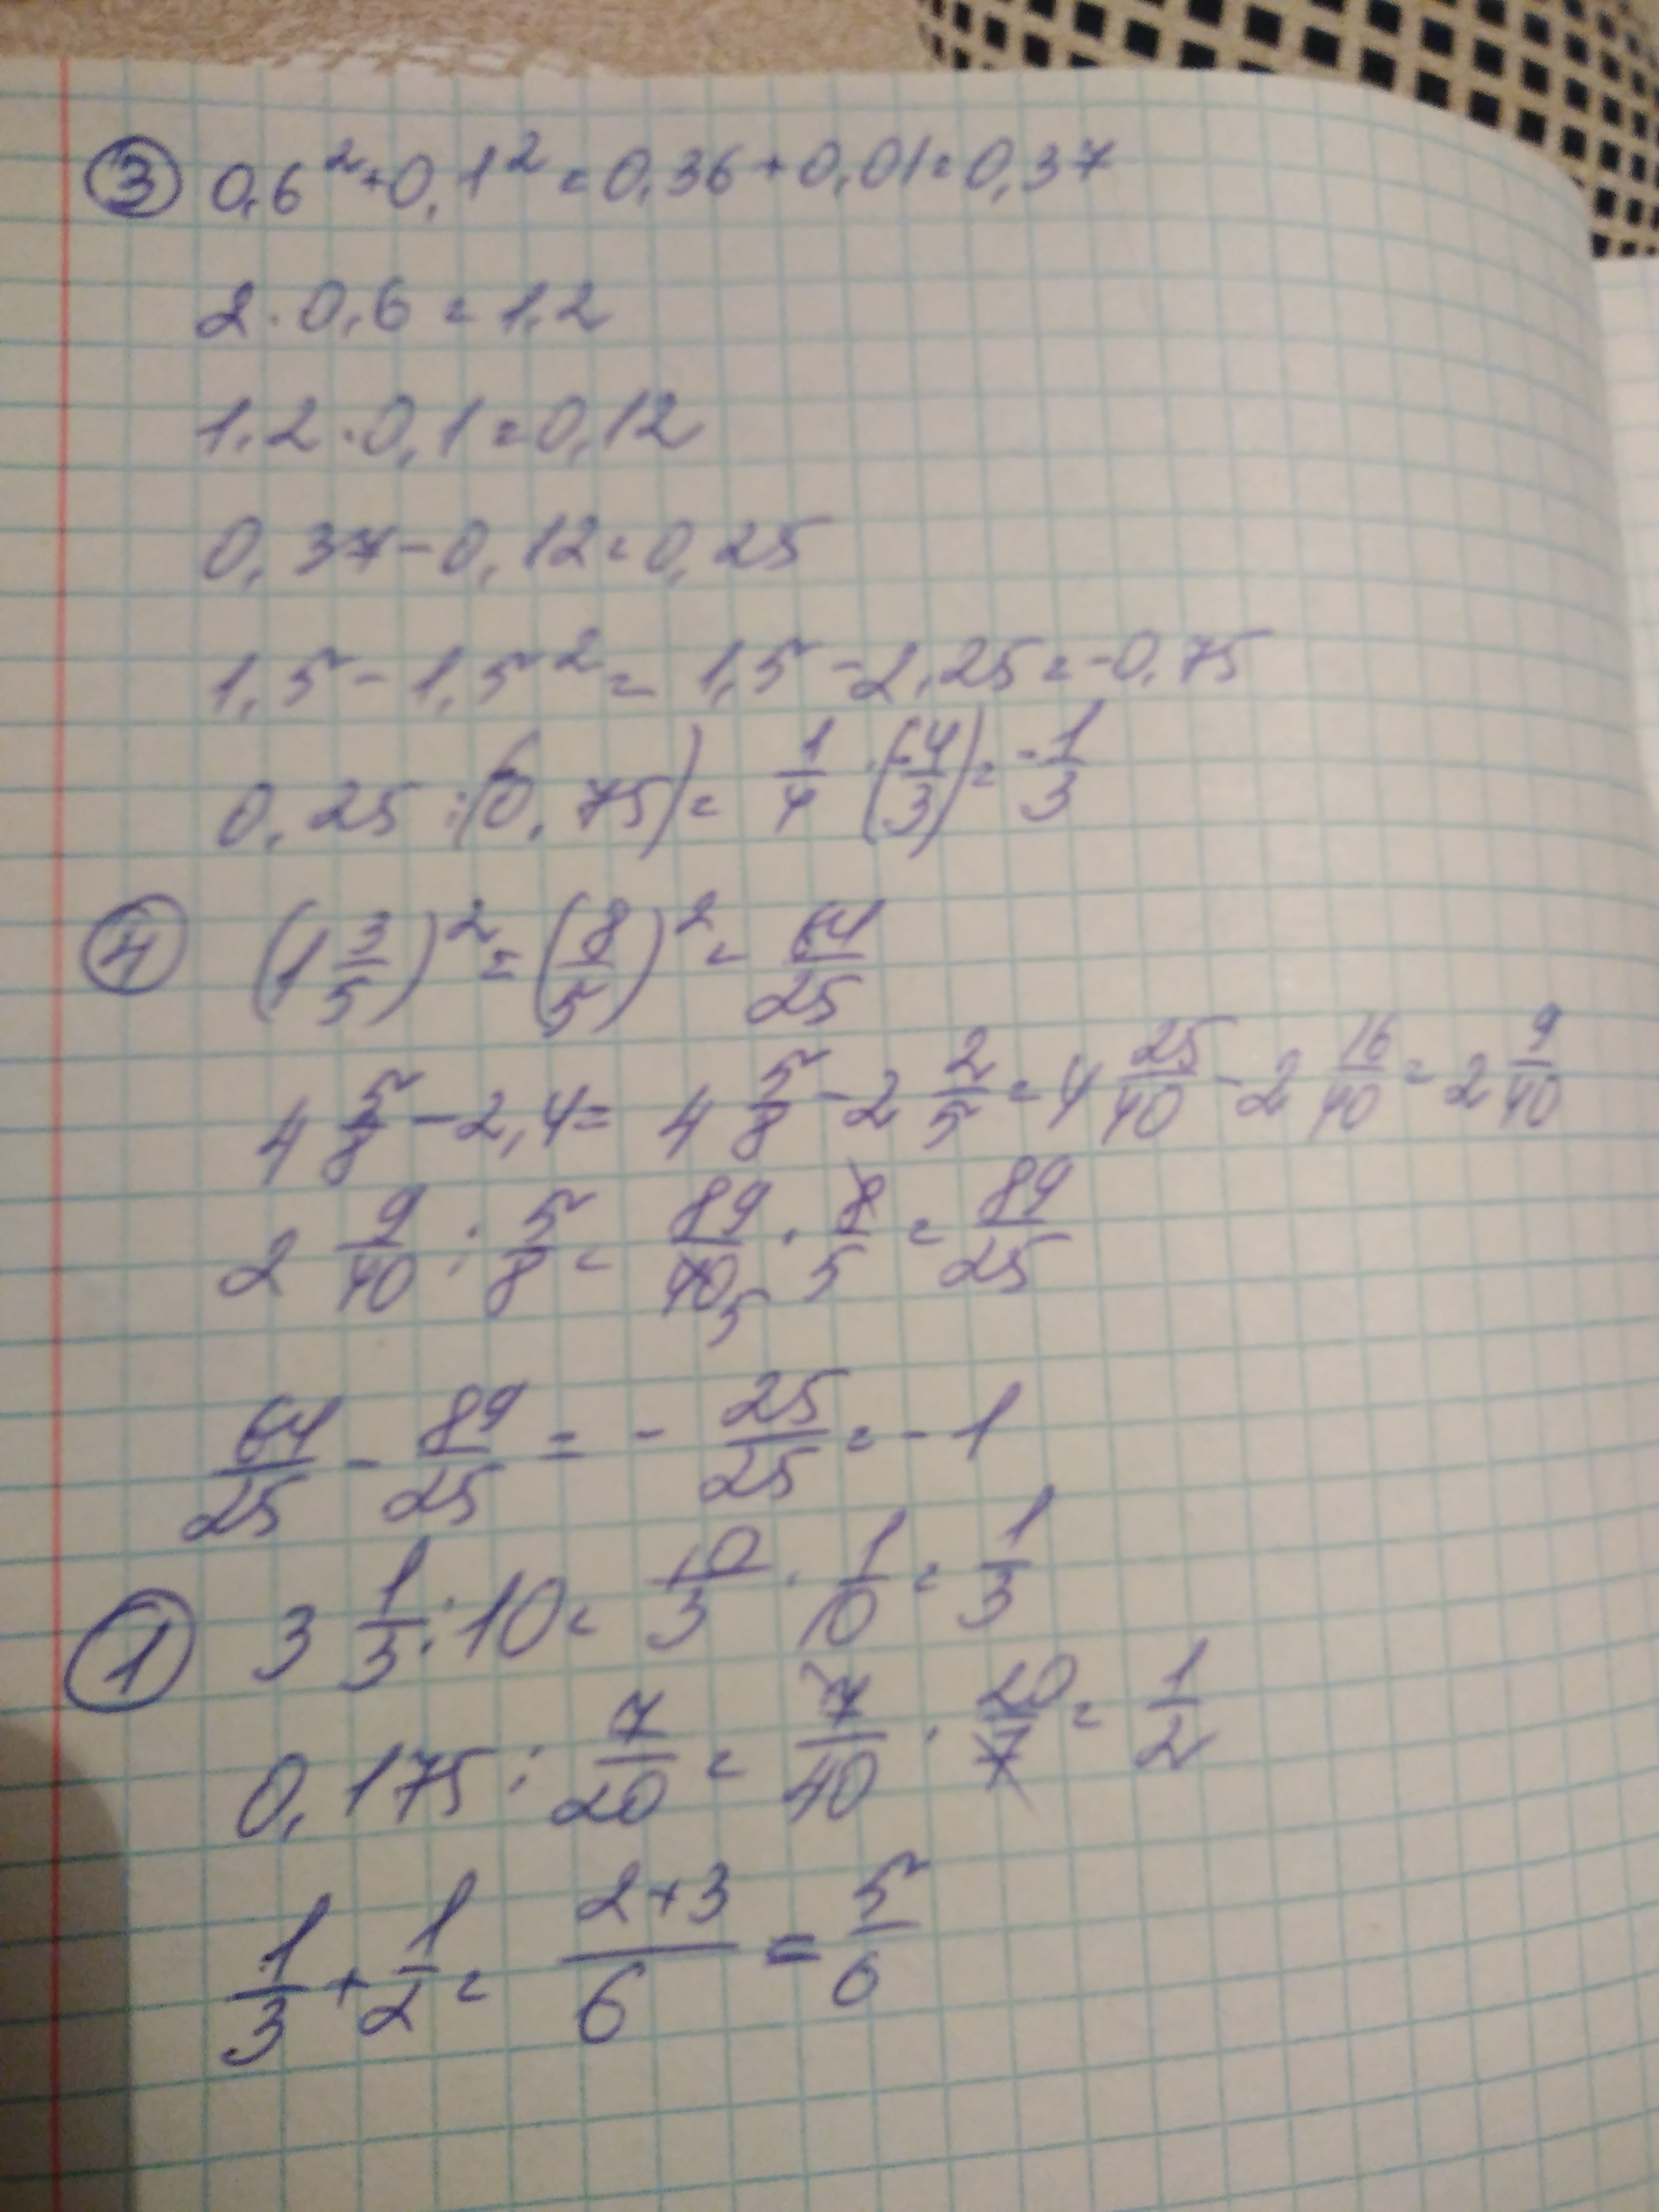 ③ 0,6² + 0,1² = 0,36 + 0,01 = 0,37
2 · 0,6 = 1,2
1,2 · 0,1 = 0,12
0,37 - 0,12 = 0,25
1,5 - 1,5² = 1,5 - 2,25 = -0,75
0,25 : (-0,75) = 1/4 · (-4/3) = -1/3
④ (1 3/5)² = (8/5)² = 64/25
4 5/8 - 2,4 = 4 5/8 - 2 2/5 = 4 25/40 - 2 16/40 = 2 9/40
2 9/40 : 5/8 = 89/40 5 · 8/5 = 89/25
64/25 - 89/25 = - 25/25 = -1
① 3 1/3 : 10 = 10/3 · 1/10 = 1/3
0,175 : 7/20 = 7/40 · 20/7 = 1/2
1/3 + 1/2 = 2+3/6 = 5/6